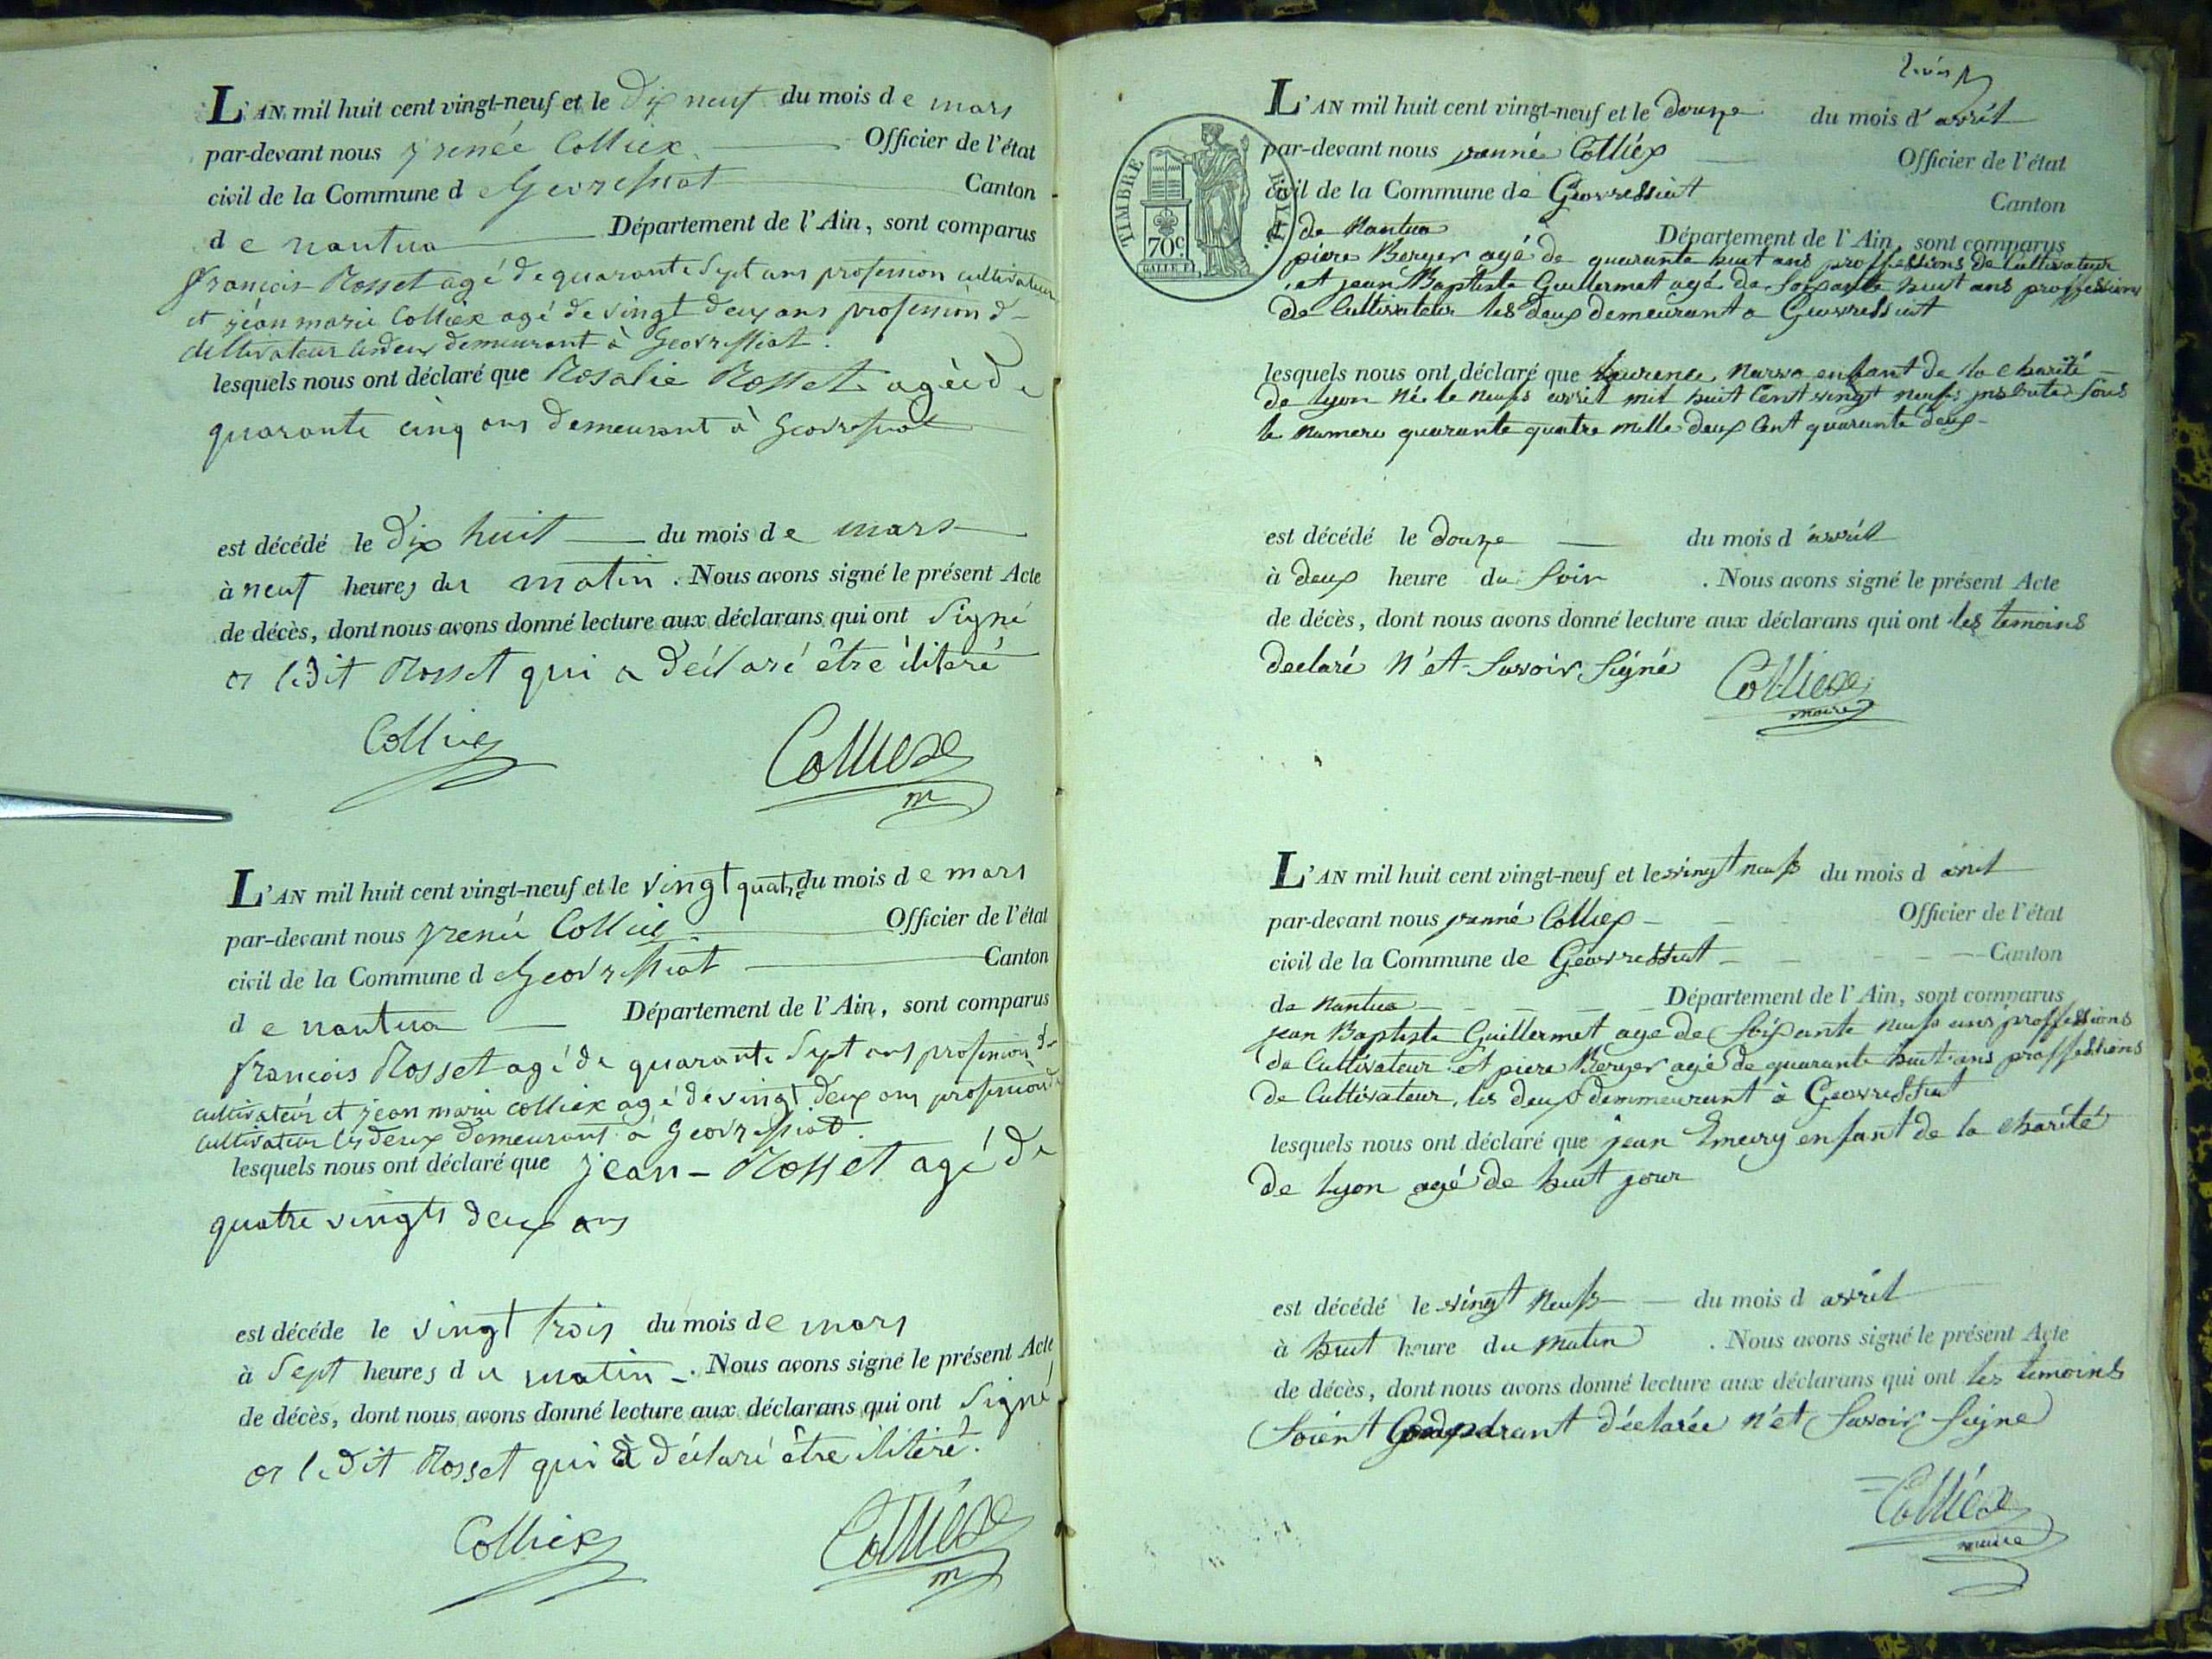 L'AN mil huit cent vingt-neuf et le Dix neuf du mois de mars
par-devant nous yrenée Colliex Officier de l'état
civil de la Commune d Geovressiat Canton
de nantua Département de l'Ain, sont comparus
françois Rosset agé de quarante Sept ans profession cultivateur
et jéan marie Colliex agé de vingt deux ans profession d
cultivateur les deux demeurant à Geovressiat.
lesquels nous ont déclaré que Rosalie Rosset agée de
quarante cinq ans demeurant à Geovressiat
est décédé le dix huit du mois de mars
à neuf heures du matin. Nous avons signé le présent Acte
de décès, dont nous avons donné lecture aux déclarans qui ont Signé
or ledit Rosset qui a déclaré être iliteré
Colliex
Colliex
m
L'AN mil huit cent vingt-neuf et le vingt quatre du mois de mars
par-devant nous yrené Colliex Officier de l'état
civil de la Commune d Geovressiat Canton
de nantua Département de l'Ain, sont comparus
françois Rosset agé de quarante Sept ans profession de
cultivateur et jean marie colliex agé de vingt deux ans profession de
cultivateur les deux demeurant à Geovressiat.
lesquels nous ont déclaré que jean - Rosset agé de
quatre vingts deux ans
est décéde le vingt trois du mois de mars
à Sept heures du matin. Nous avons signé le présent Acte
de décès, dont nous avons donné lecture aux déclarans qui ont Signé
or ledit Rosset qui à déclaré être ilitéré.
Colliex
Colliex
m
TIMBRE ROYAL
70c.
L'AN mil huit cent vingt-neuf et le douze du mois d'avril
par-devant nous yrenné Colliex Officier de l'état
civil de la Commune de Geovressiat Canton
de Nantua Département de l'Ain, sont comparus
piere Berger agé de quarante huit ans proffessions de Cultivateur
et jean Baptiste Guillermet agé de Soixante huit ans proffessions
de Cultivateur les deux demeurant a Geovressiat
lesquels nous ont déclaré que Laurence, enfant de la Charité
de Lyon Né le neufs avril mil huit Cent vingt neufs Sous
le Numero quarante quatre mille deux Cent quarante deux
est décédé le douze du mois d'avril
à deux heure du Soir. Nous avons signé le présent Acte
de décès, dont nous avons donné lecture aux déclarans qui ont les temoins
declaré N'et Savoir Signé
Colliex
maire
L'AN mil huit cent vingt-neuf et le vingt neufs du mois d avril
par-devant nous yrenné Colliex Officier de l'état
civil de la Commune de Geovressiat Canton
de Nantua Département de l'Ain, sont comparus
jean Baptiste Guillermet age de Soixante neufs ans proffessions
de Cultivateur et piere Berger agé de quarante huit ans proffessions
de Cultivateur, les deux demmeurant à Geovressiat
lesquels nous ont déclaré que jean Emery enfant de la Charité
de Lyon agé de huit jour
est décédé le vingt Neufs du mois d avril
à huit heure du Matin. Nous avons signé le présent Acte
de décès, dont nous avons donné lecture aux déclarans qui ont les temoins
déclarée N'et Savoir Signe
Colliex
maire